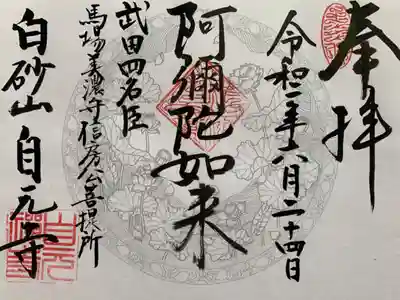 奉拝
令和二年八月二十四日
阿彌陀如来
武田四名臣
馬場美濃守信房公菩提所
白砂山自元寺